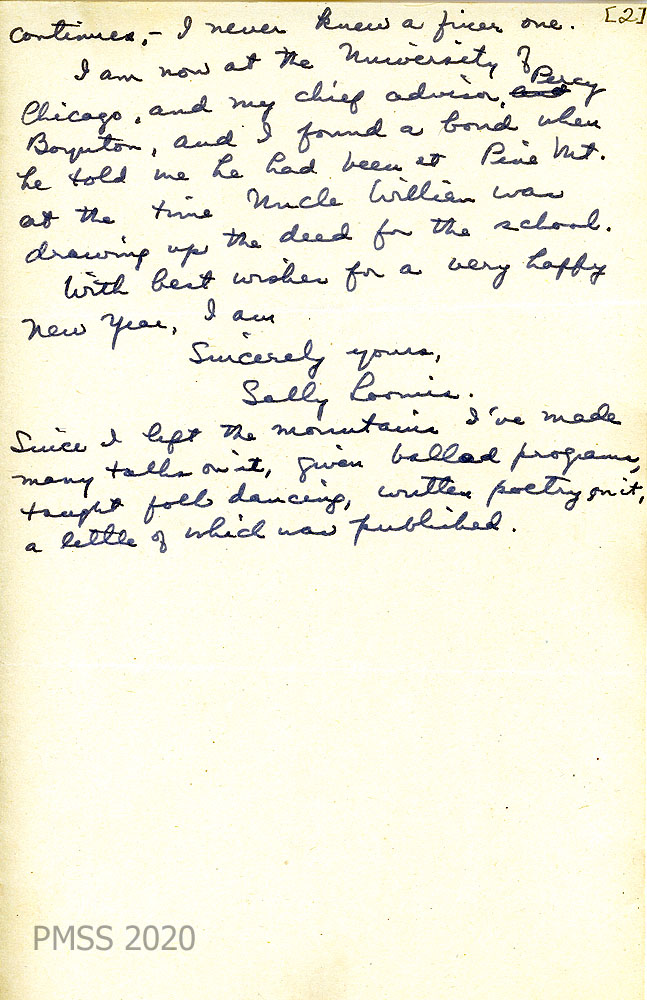 [2]
continues,- I never knew a finer one.
I am now at the University of
Chicago, and my chief advisor, and Percy
Boynton, and I found a bond when
he told me he had been at Pine Mt.
at the time Uncle William was
drawing up the deed for the school.
With best wishes for a very happy
New Year, I am
Sincerely yours,
Sally Loomis.
Since I left the mountains I've made
many talks on it, given ballad programs,
taught folk dancing, written poetry on it,
a little of which was published.
PMSS 2020